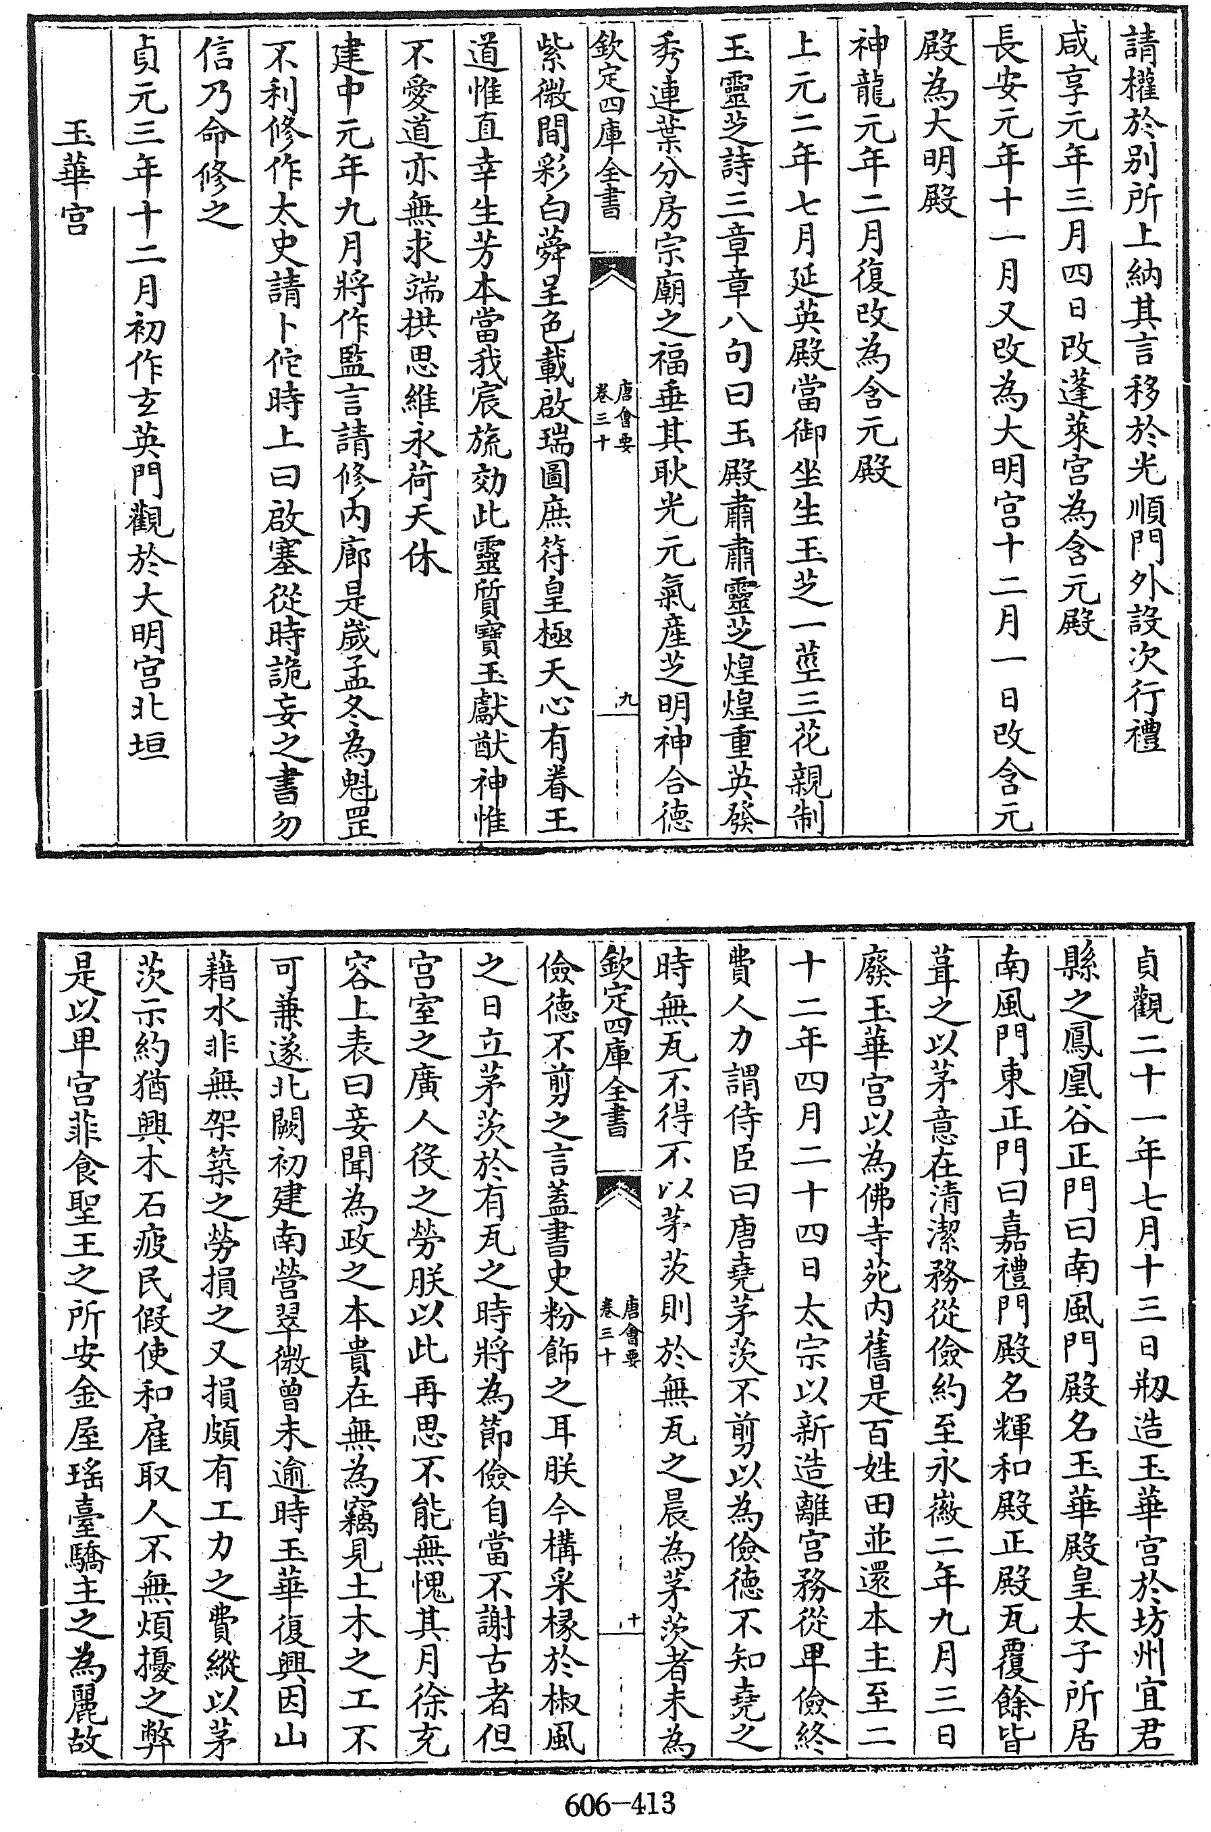 請權於别所上納其言移於光順門外設次行禮
咸享元年三月四日改蓬萊宫為含元殿
長安元年十一月又改為大明宫十二月一日改含元
殿為大明殿
神龍元年二月復改為含元殿
上元二年七月延英殿當御坐生玉芝一莖三花親制
玉靈芝詩三章章八句曰玉殿肅肅靈芝煌煌重英發
秀連葉分房宗廟之福垂其耿光元氣産芝明神合德
欽定四庫全書
唐會要
卷三十
九
紫微間彩白蕣呈色載啟瑞圖庶符皇極天心有眷王
道惟直幸生芳本當我宸旒効此靈質寶玉獻猷神惟
不愛道亦無求端拱思維永荷天休
建中元年九月將作監言請修内廊是歲孟冬為魁罡
不利修作太史請卜佗時上曰啟塞從時詭妄之書勿
信乃命修之
貞元三年十二月初作玄英門觀於大明宫北垣
玉華宫
貞觀二十一年七月十三日剏造玉華宫於坊州宜君
縣之鳳凰谷正門曰南風門殿名玉華殿皇太子所居
南風門東正門曰嘉禮門殿名輝和殿正殿瓦覆餘皆
葺之以茅意在清潔務從儉約至永徽二年九月三日
廢玉華宫以為佛寺苑内舊是百姓田並還本主至二
十二年四月二十四日太宗以新造離宫務從卑儉終
費人力謂侍臣曰唐堯茅茨不剪以為儉德不知堯之
時無瓦不得不以茅茨則於無瓦之晨為茅茨者未為
欽定四庫全書
唐會要
卷三十
十
儉德不剪之言蓋書史粉飾之耳朕今構采椽於椒風
之日立茅茨於有瓦之時將為節儉自當不謝古者但
宫室之廣人役之勞朕以此再思不能無愧其月徐充
容上表曰妾聞為政之本貴在無為竊見土木之工不
可兼遂北闕初建南營翠微曾未逾時玉華復興因山
藉水非無架築之勞損之又損頗有工力之費縱以茅
茨示約猶興木石疲民假使和雇取人不無煩擾之弊
是以卑宫菲食聖王之所安金屋瑶臺驕主之為麗故
606-413